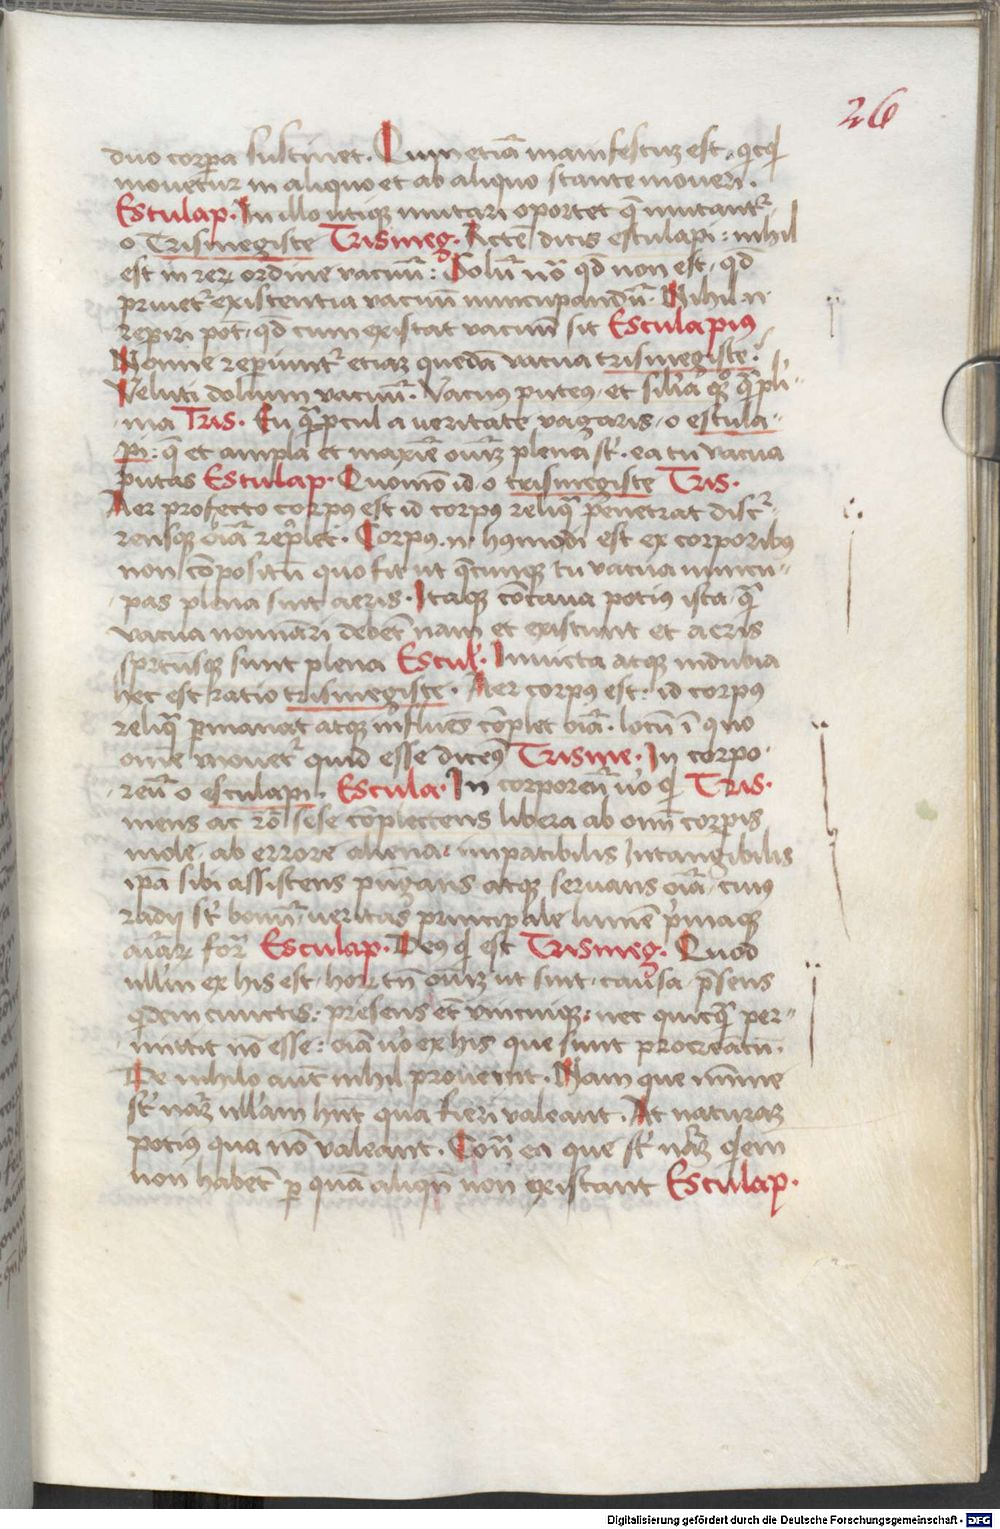 26
duo corꝑa sustinet. Quin etiā manifestuz est, qicqd
mouetur in aliquo et ab aliquo stante moueri.
Esculap. In illo utiqꝫ mutari oportet qͤ mutantʳ
o Trismegiste Trismeg. Recte dicis esculapi: nihil
est in reꝝ ordine vacuū: Solū nō qd̄ non est, qd̄
priuetʳ existentia vacuū nuncupandū. Nihil .n.
reperiri pot̄, qd̄ cum existat vacuū sit Esculapius
Nonne reperiuntʳ etiaz quedā vacua trismegiste?
Veluti dolium vacuū. Vacuus puteus, et silia
ma Tris. Eu qꝫ ꝓcul a veritate vagaris, o escula-
pi: qͤ et ampla et maxīe oīuz plena st̄. ea tu vacua
putas Esculap. Quomō id, o trismegiste Tris.
Aer profecto corpus est id corpus reliqa penetrat discʳ-
rensqꝫ oīa replet. Corpus .n. hꝰmodi est ex corporibꝰ
non cōpositū quo fit ut qͤcunqꝫ tu vacua nuncu-
pas plena sint aeris. Itaqꝫ cōcaua potius ista, qꝫ
vacua nominari debēt nam et existunt et aeris
spiritusqꝫ sunt plena Escul. Inuicta atqꝫ indubia
hec est ratio trismegiste. Aer corpus est: id corpus
reliqa permanat atqꝫ influēs cōplet oīa. locū ī quo
omne mouetʳ quid esse dicemꝰ Trisme. In corpo-
reū o esculapi. Escula. In corporeū uͦo qd Tris.
mens ac rō sese cōplectens libera ab omī corporis
mole, ab errore aliena, impatibilis Intangibilis
ipa sibi assistens purgans atqꝫ seruans oīa, cuius
radij st̄ bonū, veritas principale lumē primaqꝫ
aīaꝝ forā Esculap. Deus qd est Trismeg. Quod
nullū ex his est, hoꝝ tn̄ oīuz ut sint, causa, p̄sens
qdem cunctis: presens et̄ vnicuiqꝫ: nec quicqꝫ per-
mittit nō esse: oīa uͦo ex his que sunt procreātū.
De nihilo aut̄ nihil prouenit. Nam que minime
st̄ nāz ullam hn̄t qua fieri valeant. At naturaz
potius qua nō valeant. ea que st̄ nāz qdem
non habēt ꝑ quā aliqn̄ non existant Esculap.
Digitalisierung gefördert durch die Deutsche Forschungsgemeinschaft - DFG